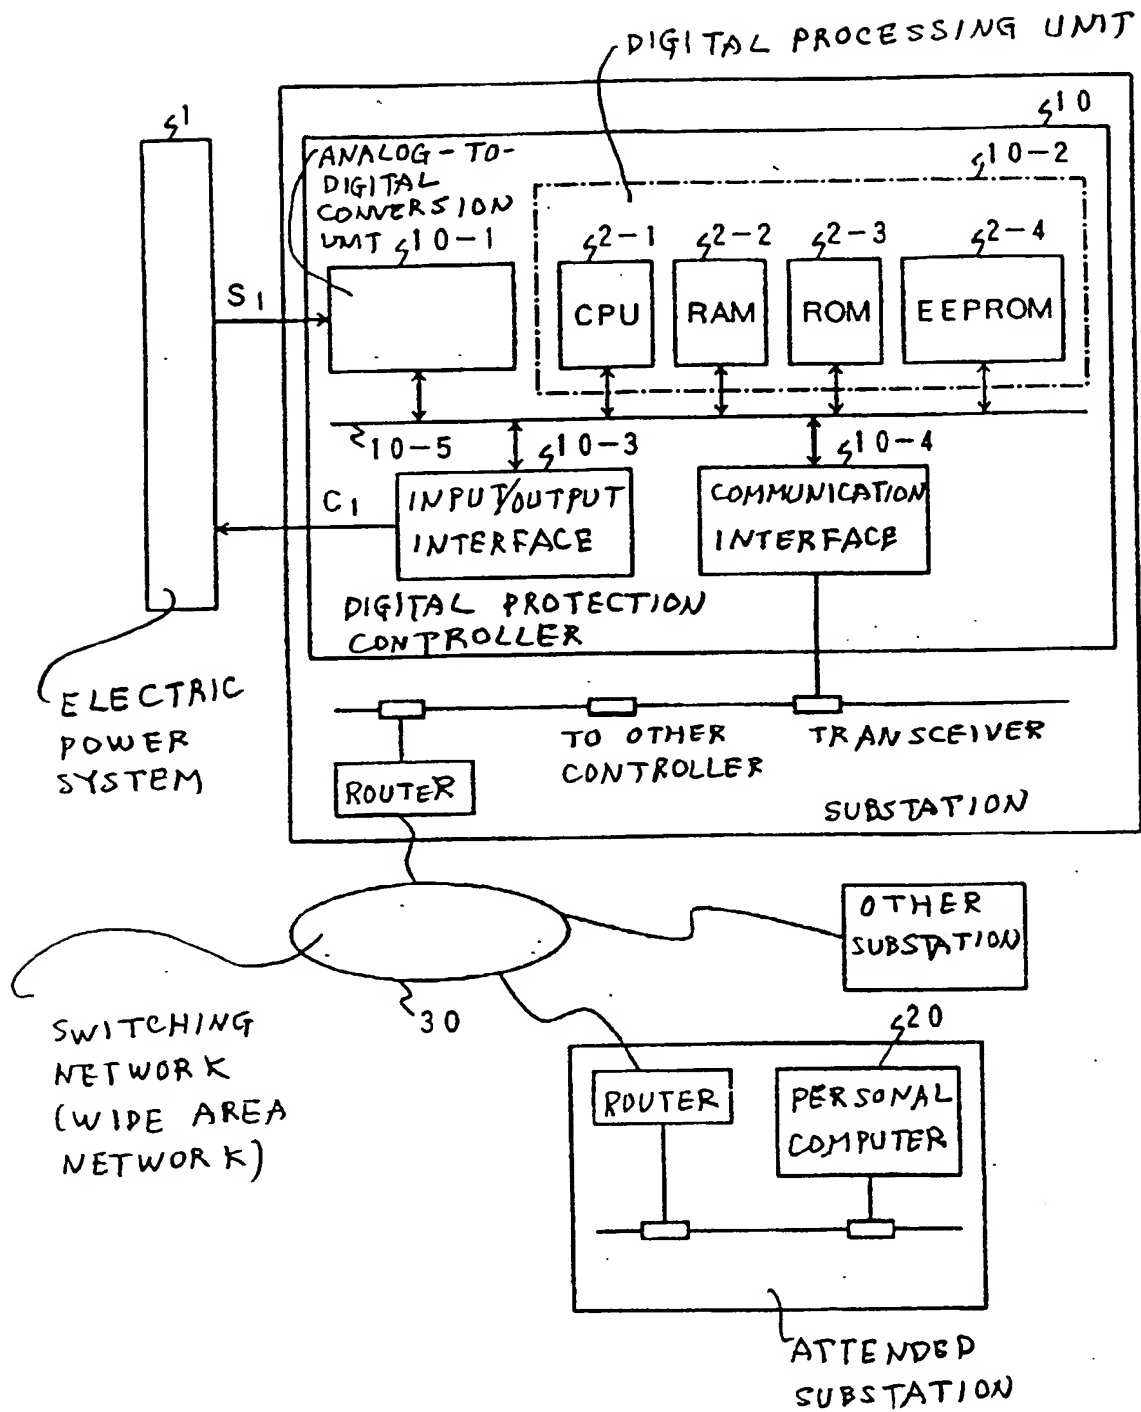 DIGITAL PROCESSING UNIT
1
10
ANALOG-TO-
DIGITAL
CONVERSION
UNIT
10-1
10-2
2-1
2-2
2-3
2-4
S1
CPU
RAM
ROM
EEPROM
10-5
10-3
10-4
C1
INPUT/OUTPUT
INTERFACE
COMMUNICATION
INTERFACE
DIGITAL PROTECTION
CONTROLLER
ELECTRIC
POWER
SYSTEM
TO OTHER
CONTROLLER
TRANSCEIVER
ROUTER
SUBSTATION
OTHER
SUBSTATION
30
SWITCHING
NETWORK
(WIDE AREA
NETWORK)
20
ROUTER
PERSONAL
COMPUTER
ATTENDED
SUBSTATION